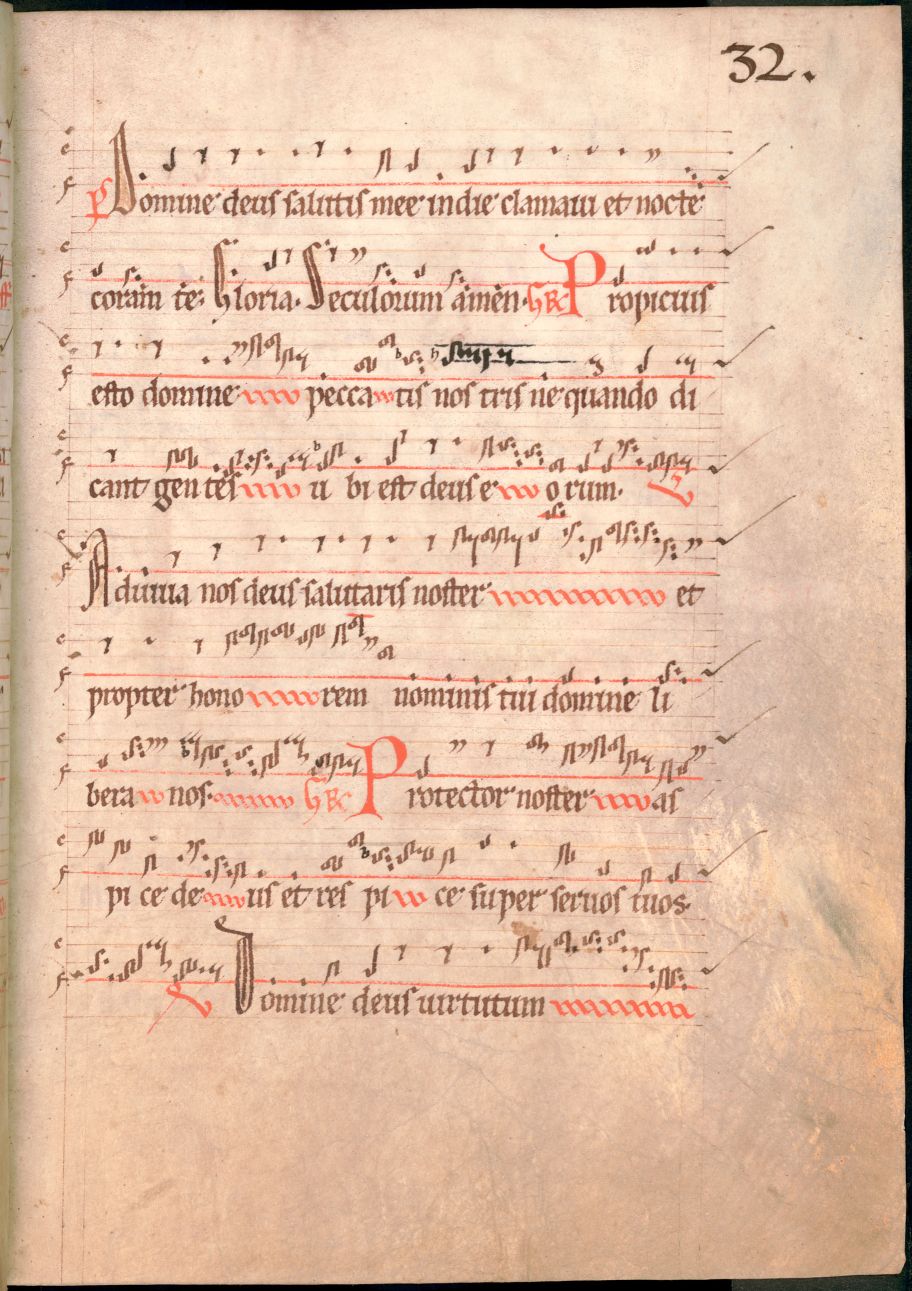 32.
Ps Domine deus salutis mee in die clamaui et nocte
coram te: Gloria. Seculorum amen. GR Propicius
esto domine peccatis nostris ne quando di
cant gentes u bi est deus e o rum. V
Adiuua nos deus salutaris noster et
propter hono rem nominis tui domine li
bera nos. GR Protector noster as
pi ce de us et res pi ce su per seruos tuos.
V Domine deus uirtutum